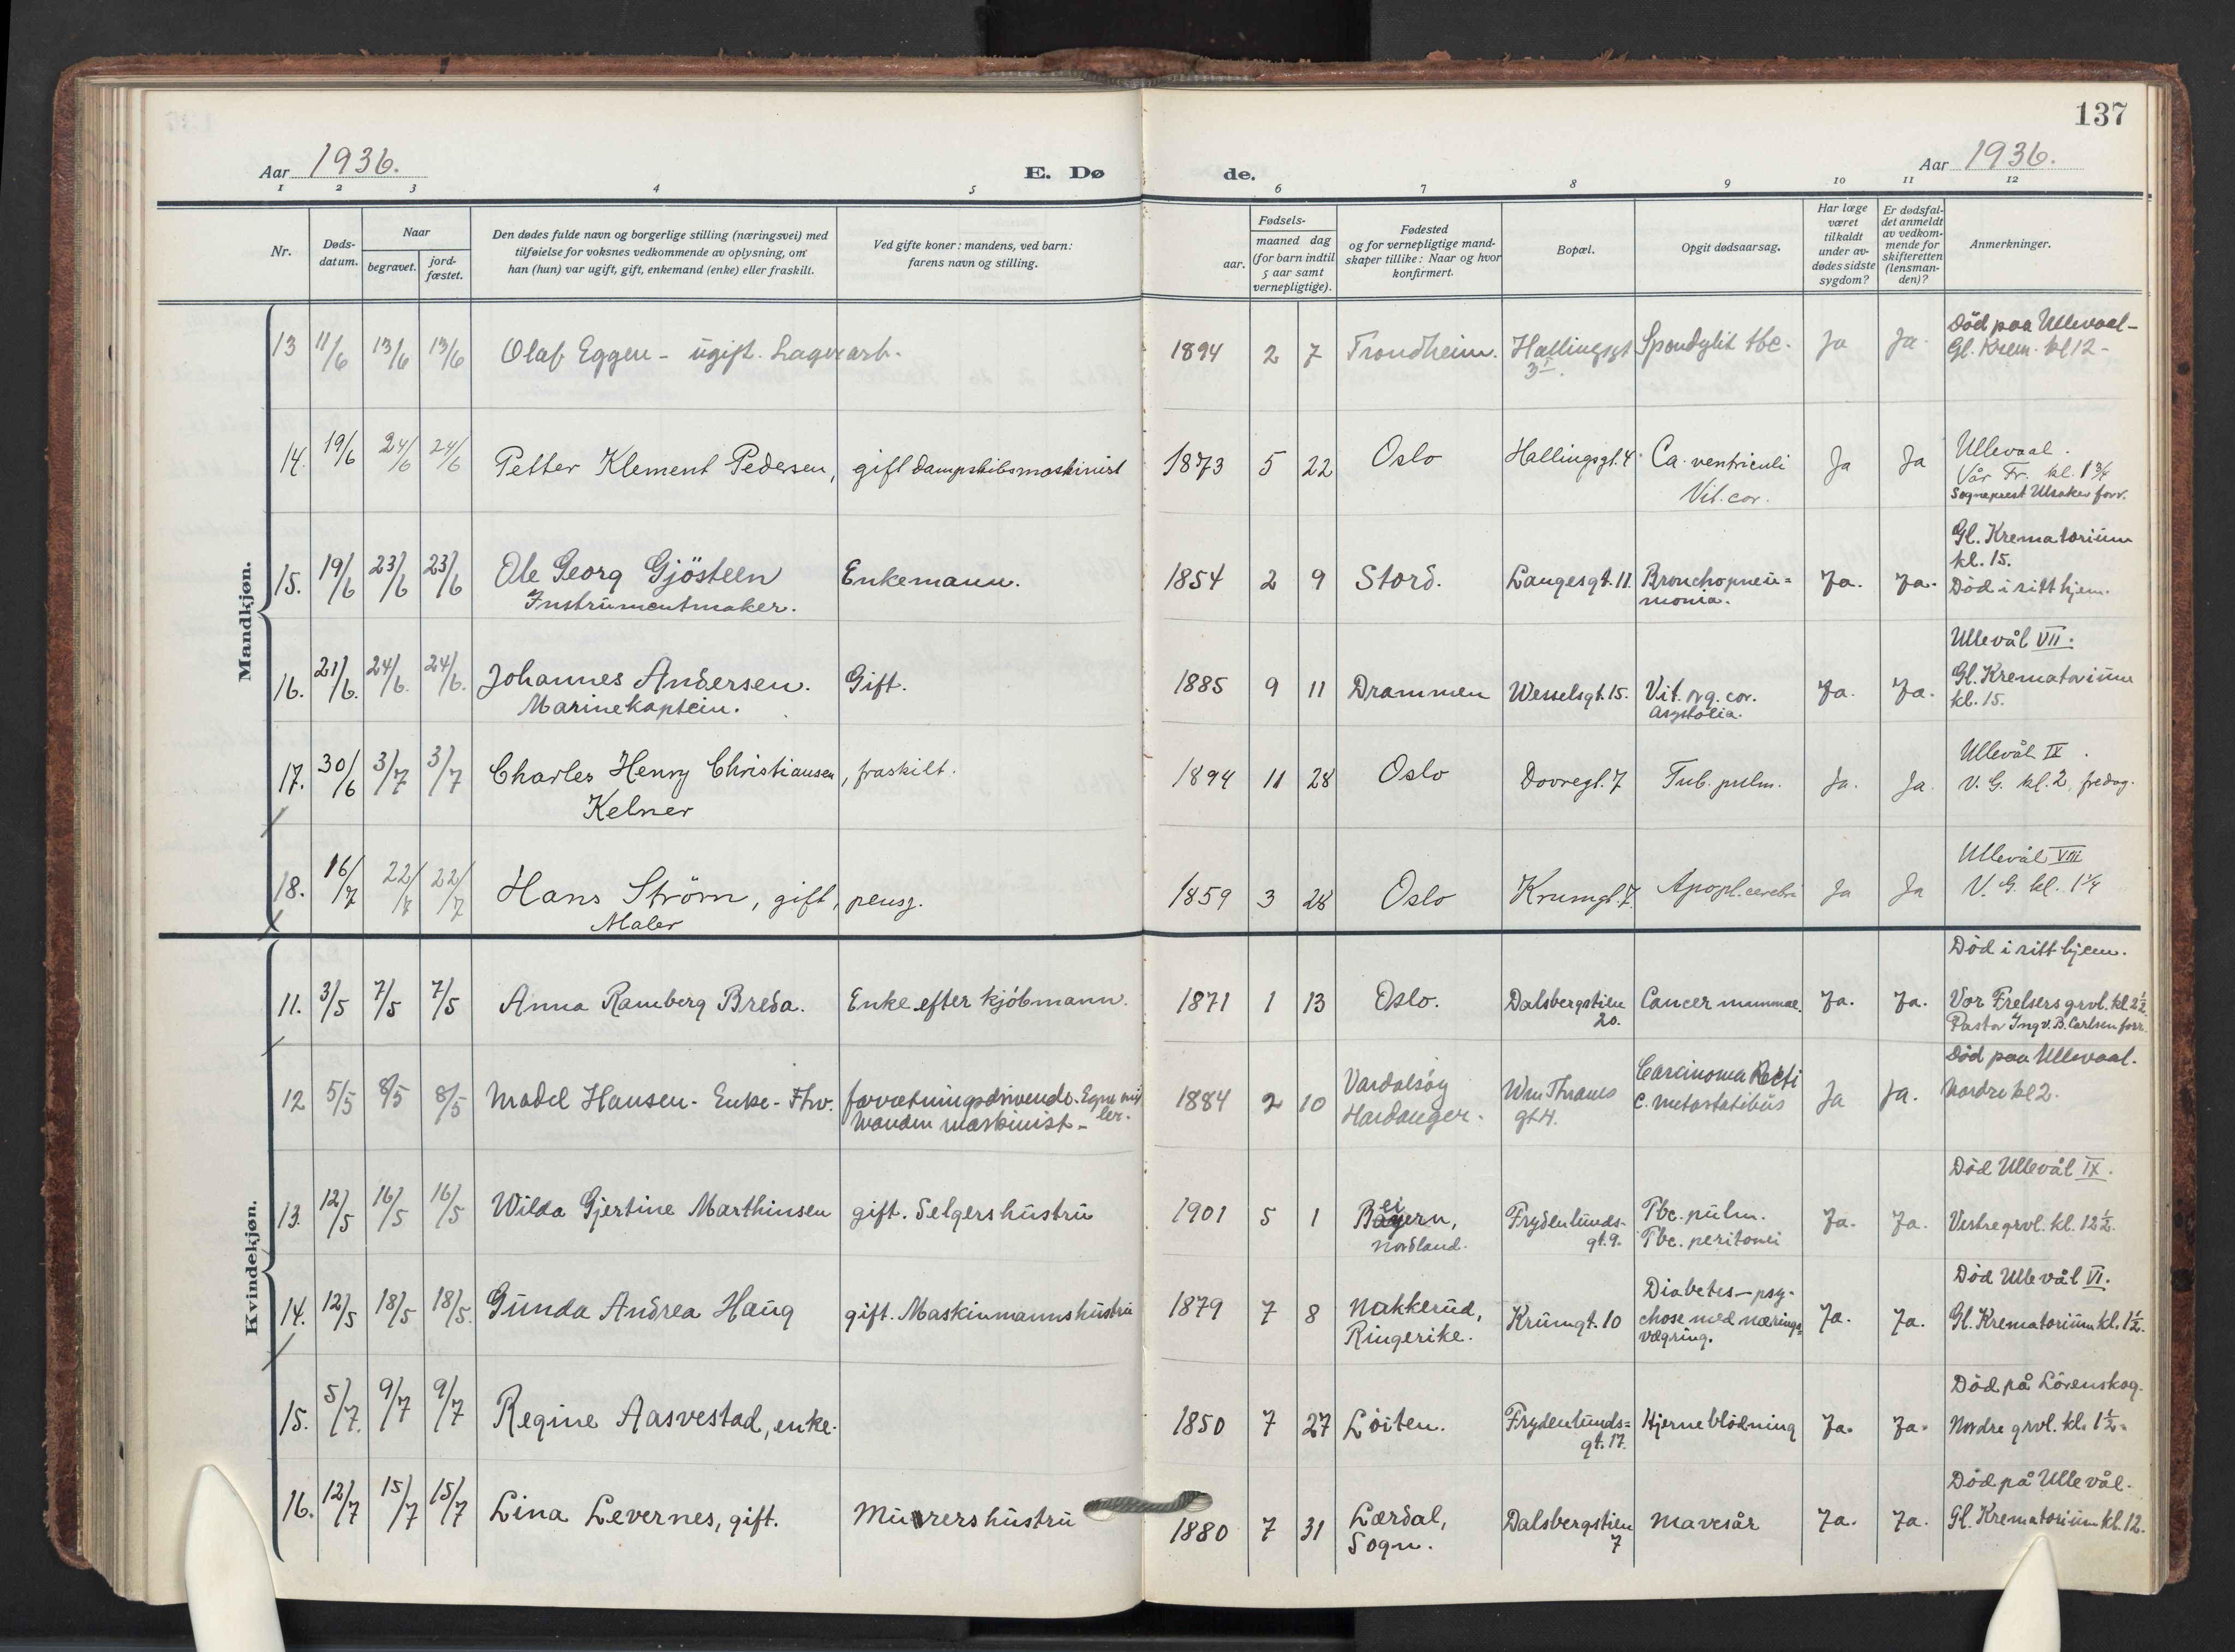 137
Aar 1936.
E. Dø
de.
Aar 1936.
1 2 3 4 5 6 7 8 9 10 11 12
Nr.
Døds-
datum.
Naar
begravet.
jord-
fæstet.
Den dødes fulde navn og borgerlige stilling (næringsvei) med
tilføielse for voksnes vedkommende av oplysning, om
han (hun) var ugift, gift, enkemand (enke) eller fraskilt.
Ved gifte koner: mandens, ved barn:
farens navn og stilling.
Fødsels-
aar.
maaned dag
(for barn indtil
5 aar samt
vernepligtige).
Fødested
og for vernepligtige mand-
skaper tillike: Naar og hvor
konfirmert.
Bopæl.
Opgit dødsaarsag.
Har læge
været
tilkaldt
under av-
dødes sidste
sygdom?
Er dødsfal-
det anmeldt
av vedkom-
mende for
skifteretten
(lensman-
den)?
Anmerkninger.
Mandkjøn.
13 11/6 13/6 13/6 Olaf Eggen - ugift. Lagerarb. 1894 2 7 Trondheim. Hallingsgt Spondylit tbc. Ja Ja. Död paa Ullevaal-
3 I. Gl. Krem. kl 12-
14. 19/6 24/6 24/6 Petter Klement Pedersen, gift dampskibsmaskinist 1873 5 22 Oslo Hallingsgt. 4. Ca. ventriculi Ja Ja Ullevaal.
Vit. cor. Vår Fr. kl. 1 3/4
Sogneprest Ulsaker forr.
15. 19/6 23/6 23/6 Ole Georg Gjösteen Enkemann. 1854 2 9 Stord. Langesgt. 11. Bronchopneu= Ja. Ja. Gl. Krematorium
Instrumentmaker. monia. kl. 15.
Död i sitt hjem.
16. 21/6. 24/6. 24/6. Johannes Andersen. Gift. 1885 9 11 Drammen Wesselsgt. 15. Vit. org. cor. Ja. Ja. Ullevål VII.
Marinekaptein. Asystolia. Gl. Krematorium
kl. 15.
17. 30/6 3/7 3/7 Charles Henry Christiansen, fraskilt. 1894 11 28 Oslo Dovregt. 7 Tub. pulm. Ja. Ja. Ullevål IX.
Kelner V. G. kl. 2, fredag.
18. 16/7 22/7 22/7 Hans Ström, gift, pensj. 1859 3 28 Oslo Krumgt. 7. Apopl. cerebri Ja Ja Ullevål VIII
Maler V. G. kl. 1 1/4
Kvindekjøn.
11. 3/5 7/5 7/5 Anna Ramberg Breda. Enke efter kjöbmann. 1871 1 13 Oslo. Dalsbergstien Cancer mammae. Ja. Ja. Död i sitt hjem.
20. Vor Frelsers grvl. kl 2 1/2.
Pastor Ingv. B. Carlsen forr.
12 5/5 8/5 8/5 Madel Hansen - Enke - Fhv. forretningsdrivende. Egne mid 1884 2 10 Carcinoma Recti Ja Ja. Död paa Ullevaal.
Manden maskinist - ler. Hardanger. gt 4. C. metastatibus Nordre kl 2.
13. 12/5 16/5 16/5 Wilda Gjertine Marthinsen gift. Selgers hustru 1901 5 1 Beiern, Frydenlunds- Tbc. pulm. Ja. Ja. Död Ullevål IX.
Nordland. gt. 9. Tbc. peritonei Vestre grvl. kl. 12 1/2.
14. 12/5 18/5 18/5. Gunda Andrea Haug gift. Maskinmanns hustru 1879 7 8 Nakkerud, Krumgt. 10 Diabetes - psy- Ja. Ja. Död Ullevål VI.
Ringerike. chose med nærings= Gl. Krematorium kl. 1 1/2.
vægring.
15. 5/7. 9/7 9/7 Regine Aasvestad, enke. 1850 7 27 Löiten. Frydenlunds= Hjerneblödning Ja. Ja. Död på Lörenskog.
gt. 17. Nordre grvl. kl. 1 1/2.
16. 12/7 15/7 15/7 Lina Levernes, gift. Murers hustru 1880 7 31 Lærdal, Dalsbergstien Mavesår Ja. Ja. Död på Ullevål.
Sogn. 7 Gl. Krematorium kl. 12.